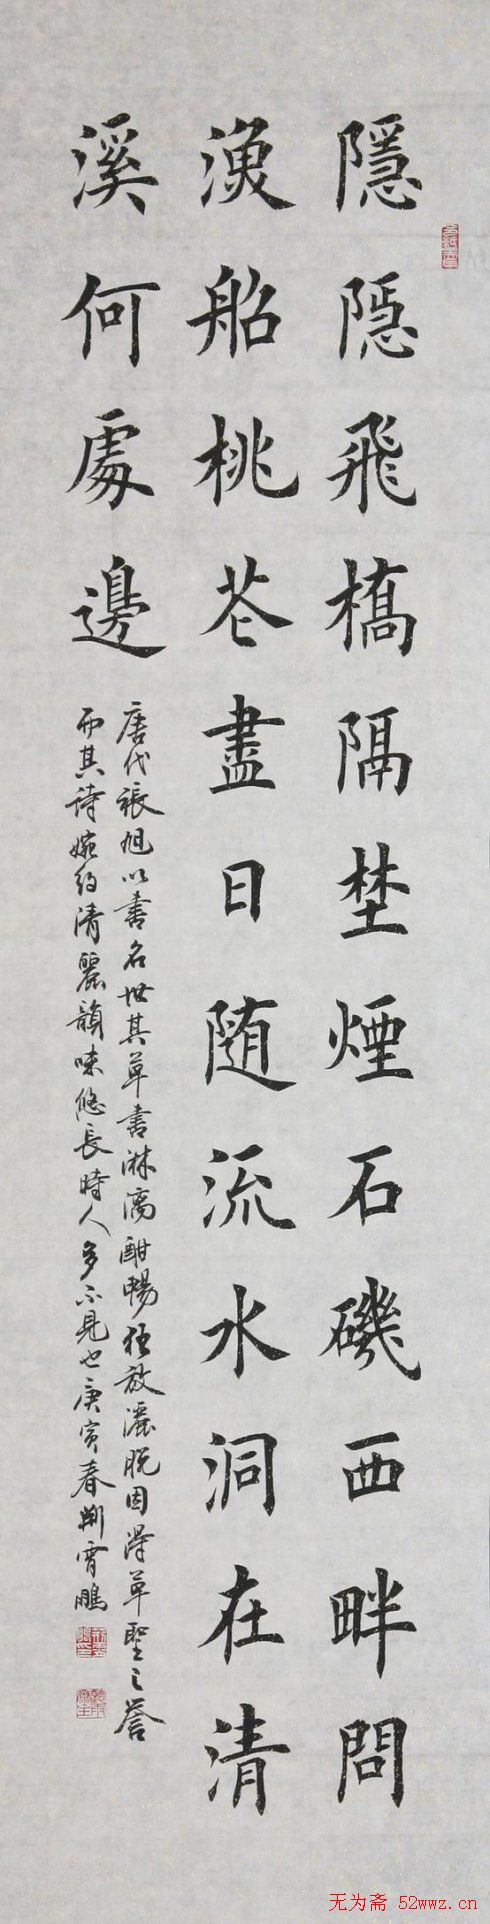 隱隱飛橋隔埜煙石磯西畔問
漁船桃花盡日随流水洞在清
溪何處邊
唐代張旭以書名世其草書淋漓酣暢狂放灑脱因得草聖之譽
而其诗婉约清麗韻味悠長時人多不見也庚寅春荆霄鵬
无为斋 52wwz.cn